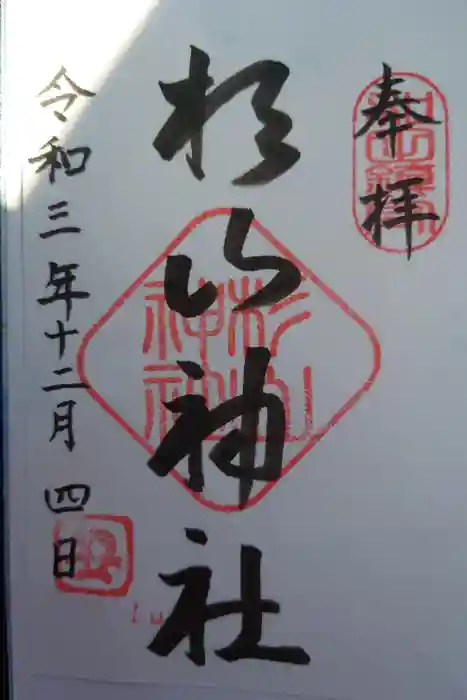 奉拝
杉山神社
杉山神社
令和三年十二月四日